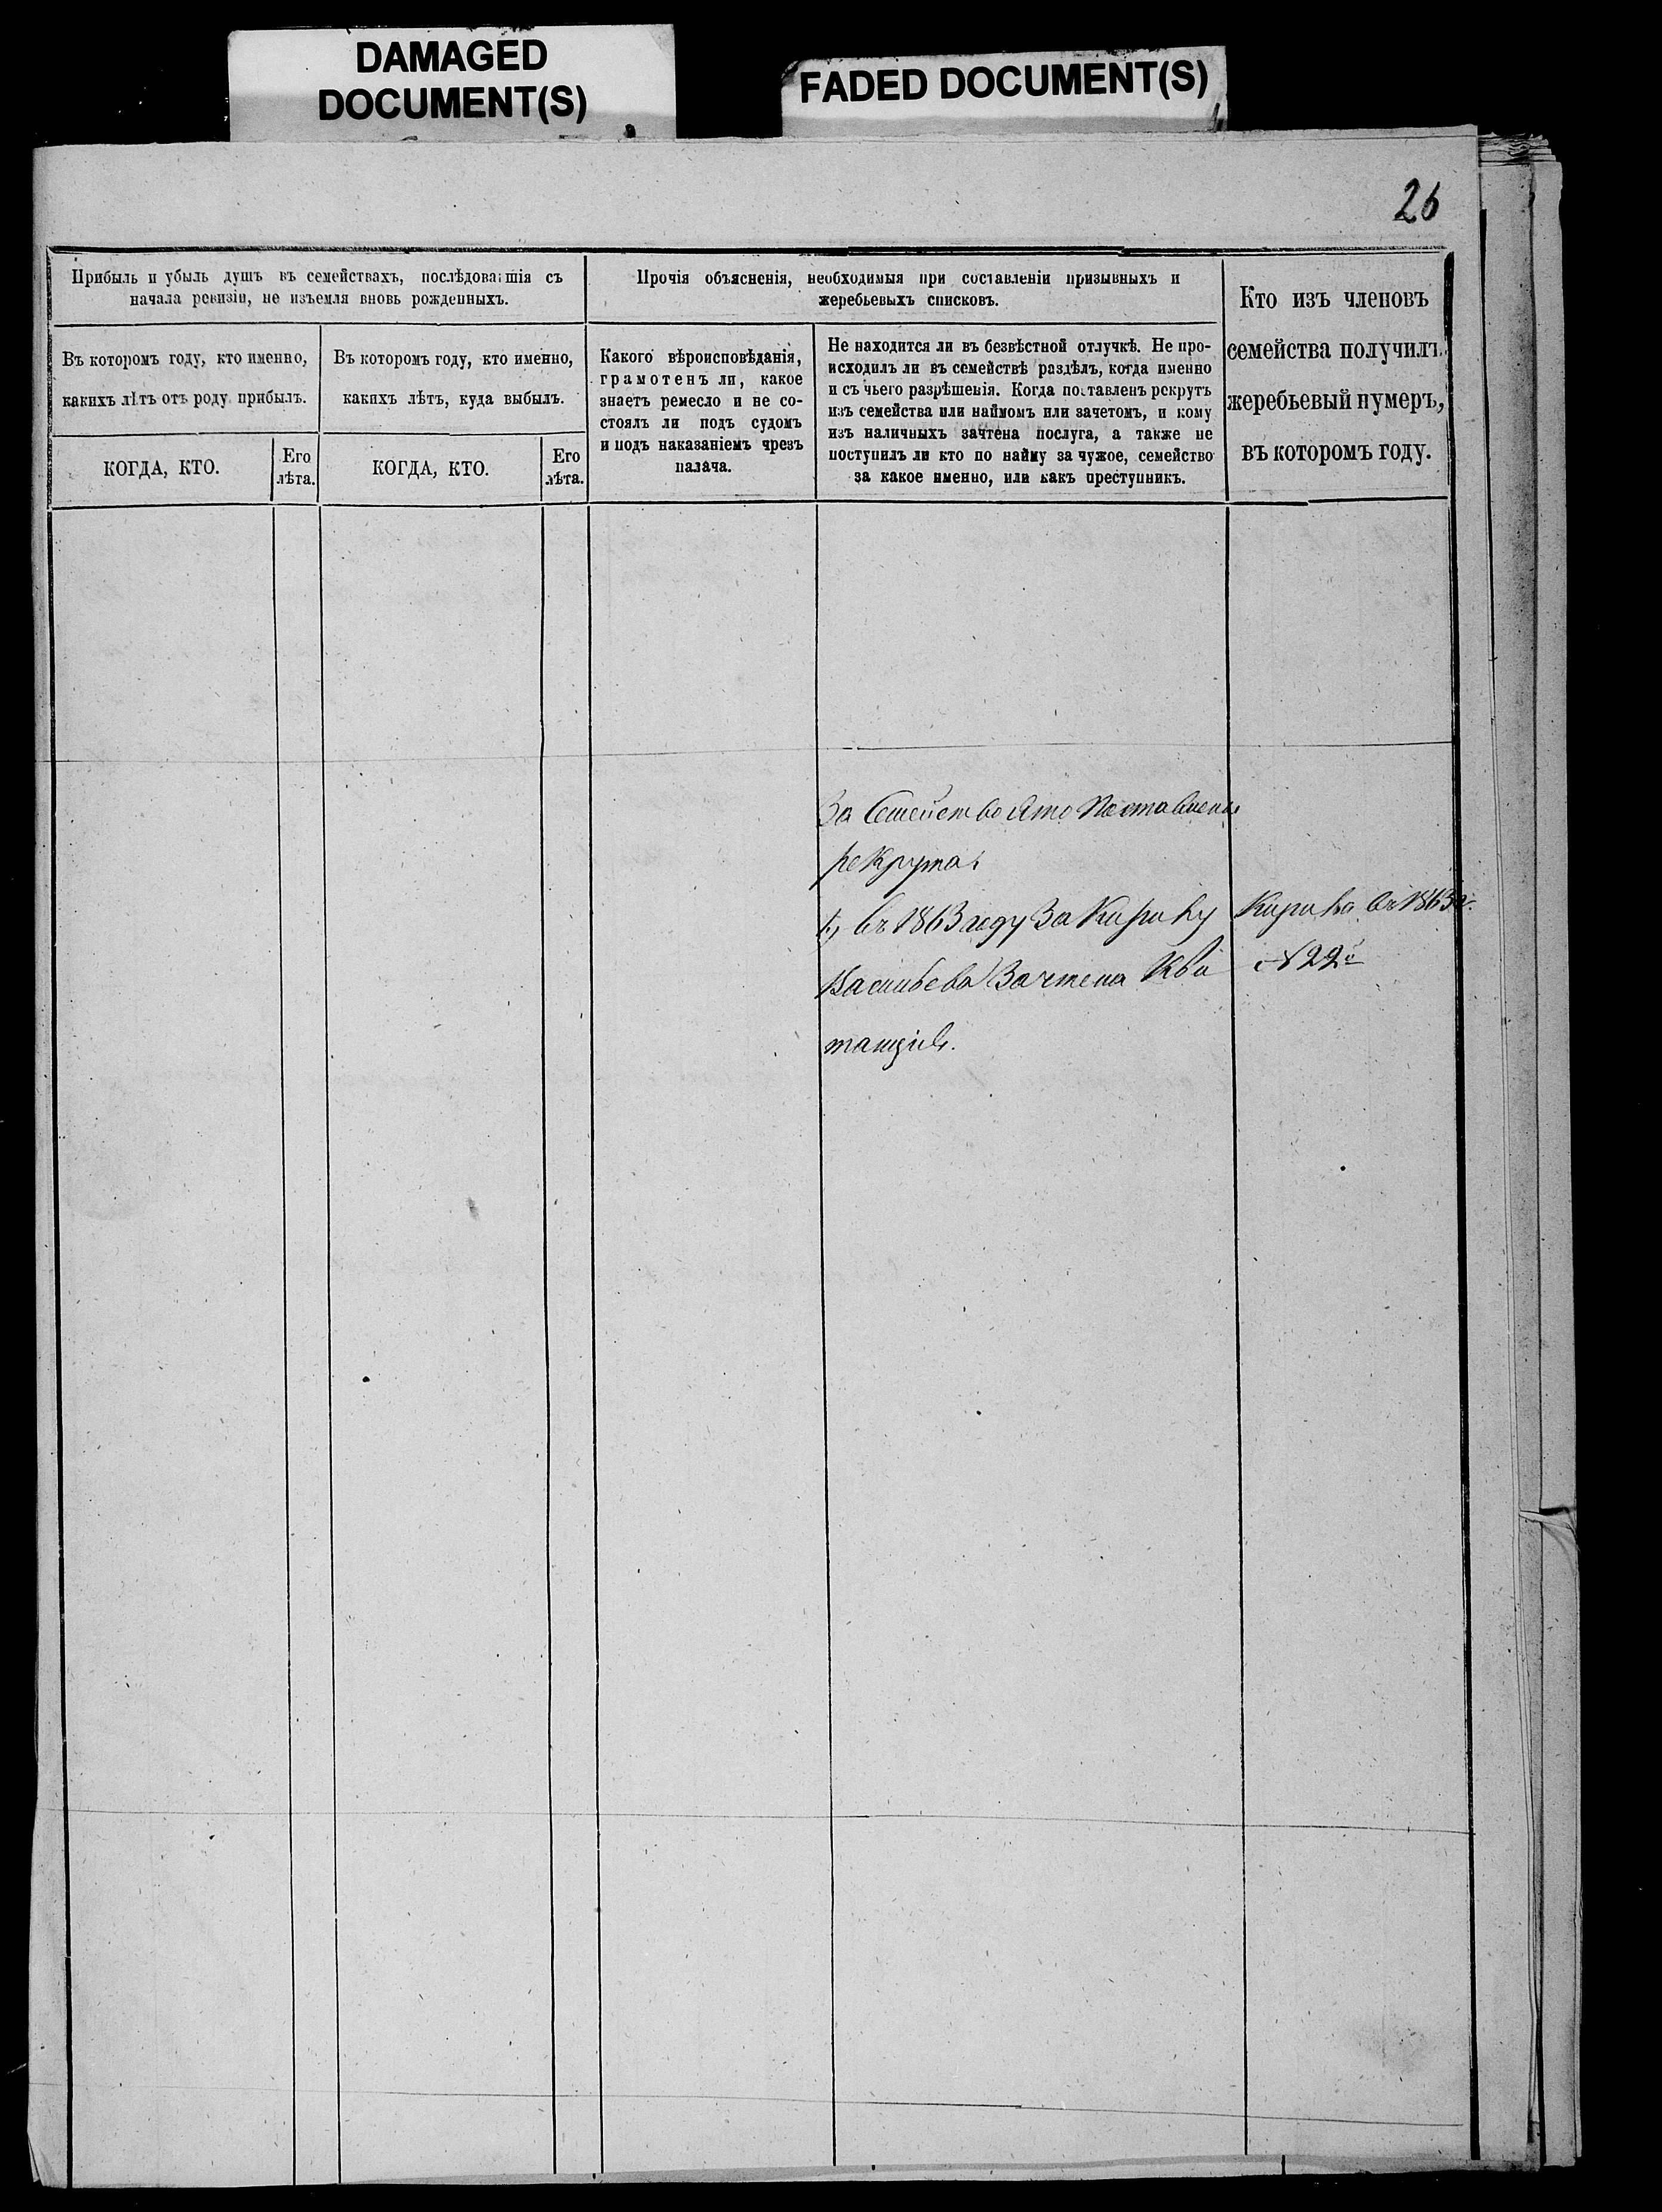 DAMAGED
DOCUMENT(S)
FADED DOCUMENT(S)
26
Прибыль и убыль душъ въ семействахъ, послѣдовавшія съ
начала ревизіи, не изъемля вновь рожденныхъ.
Въ которомъ году, кто именно,
какихъ лѣтъ отъ роду прибылъ.
КОГДА, КТО.
Его
лѣта.
Въ которомъ году, кто именно,
какихъ лѣтъ, куда выбылъ.
КОГДА, КТО.
Его
лѣта.
Прочія объясненія, необходимыя при составленіи призывныхъ и
жеребьевыхъ списковъ.
Какого вѣроисповѣданія,
грамотенъ ли, какое
знаетъ ремесло и не со-
стоялъ ли подъ судомъ
и подъ наказаніемъ чрезъ
палача.
Не находится ли въ безвѣстной отлучкѣ. Не про-
исходилъ ли въ семействѣ раздѣлъ, когда именно
и съ чьего разрѣшенія. Когда поставленъ рекрутъ
изъ семейства или наймомъ или зачетомъ, и кому
изъ наличныхъ зачтена послуга, а также не
поступилъ ли кто по найму за чужое, семейство
за какое именно, или какъ преступникъ.
Кто изъ членовъ
семейства получилъ
жеребьевый нумеръ,
въ которомъ году.
За Семейство Это Поставлены
рекрута.
1, въ 1863 году За Кирику
Васильева Зачтена Кви
танція.
Кирика въ 1863 г.
№ 22й